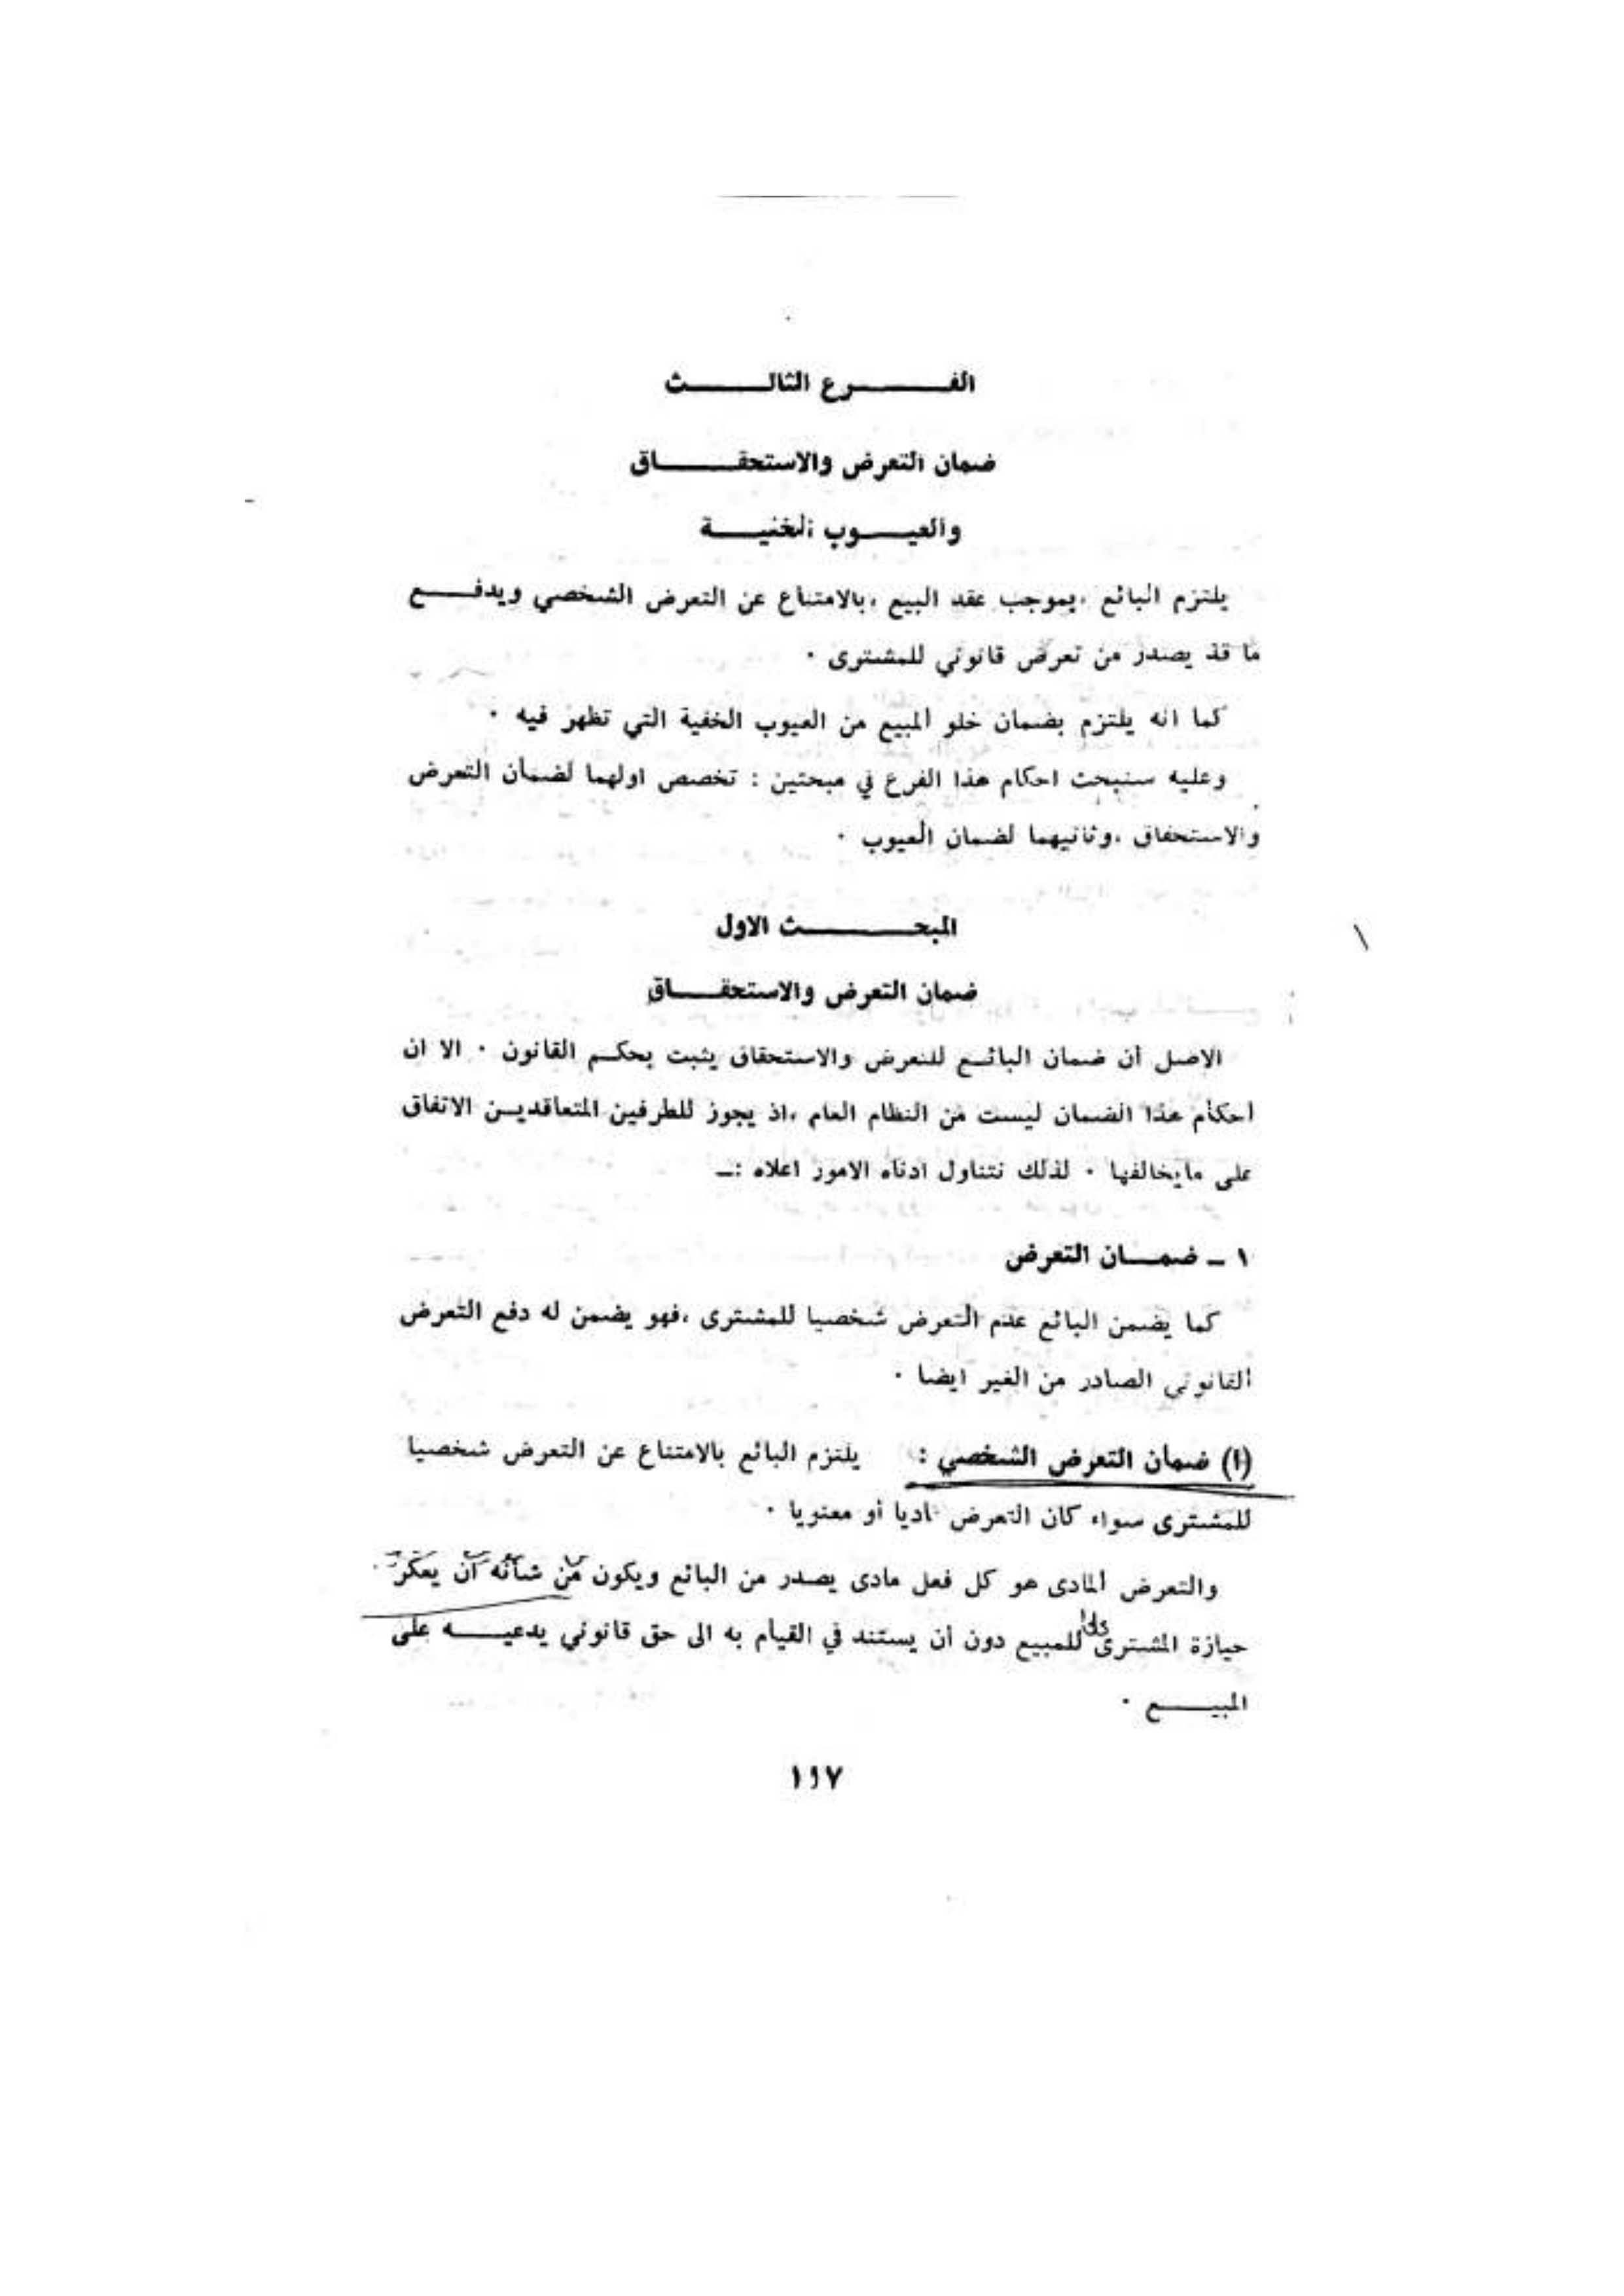 الفرع الثالث
ضمان التعرض والاستحقاق
والعيوب الخفية
يلتزم البائع ،بموجب عقد البيع ،بالامتناع عن التعرض الشخصي ويدفع
ما قد يصدر من تعرض قانوني للمشترى ٠
كما انه يلتزم بضمان خلو المبيع من العيوب الخفية التي تظهر فيه ٠
وعليه سنبحث احكام هذا الفرع في مبحثين : نخصص اولهما لضمان التعرض
والاستحقاق ،وثانيهما لضمان العيوب ٠
المبحث الاول
ضمان التعرض والاستحقاق
الاصل أن ضمان البائع للتعرض والاستحقاق يثبت بحكم القانون ٠ الا ان
أحكام هذا الضمان ليست من النظام العام ،اذ يجوز للطرفين المتعاقدين الاتفاق
على مايخالفها ٠ لذلك نتناول ادناه الامور اعلاه :ـ
١ ـ ضمان التعرض
كما يضمن البائع عدم التعرض شخصيا للمشترى ،فهو يضمن له دفع التعرض
القانوني الصادر من الغير ايضا ٠
(ا) ضمان التعرض الشخصي : يلتزم البائع بالامتناع عن التعرض شخصيا
للمشترى سواء كان التعرض ماديا أو معنويا ٠
والتعرض المادى هو كل فعل مادى يصدر من البائع ويكون من شأنه أن يعكر
حيازة المشترى للمبيع دون أن يستند في القيام به الى حق قانوني يدعيه على
المبيع ٠
١١٧